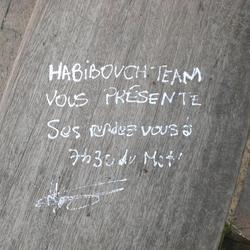 HABIBOUCH TEAM
VOUS PRÉSENTE
Ses rendez vous à
7h30 du Mat'